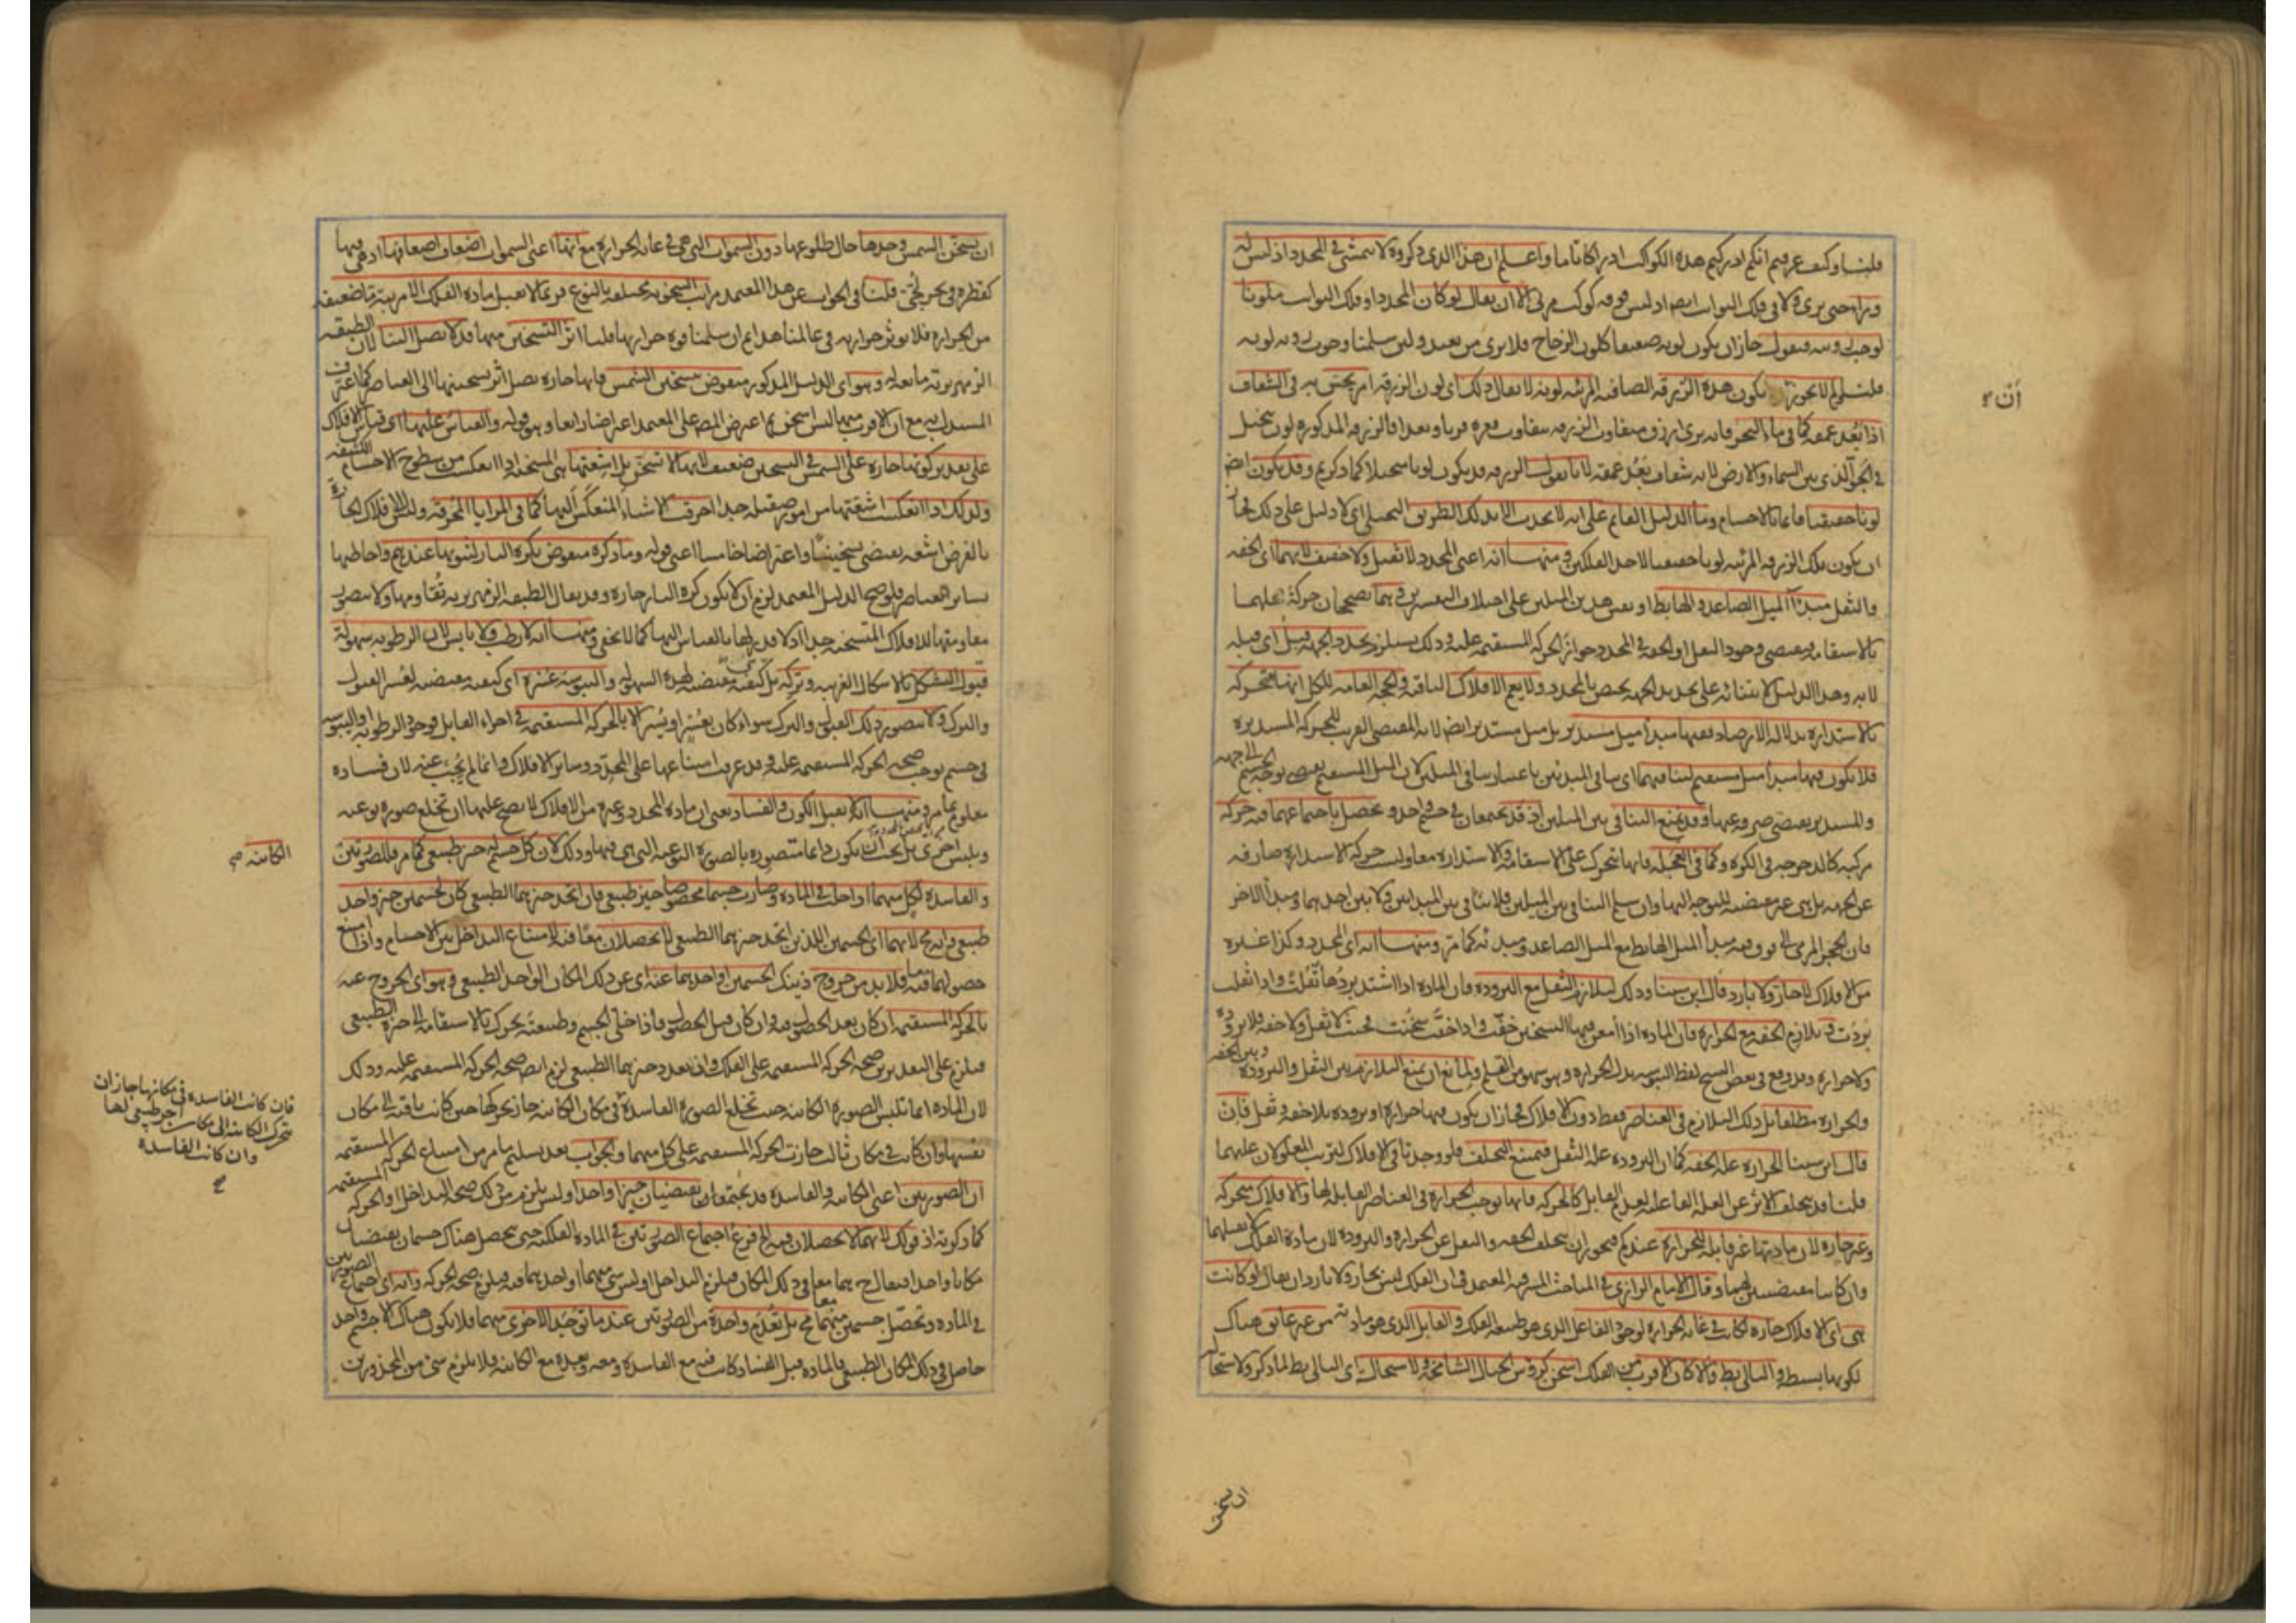 قلنا وكيف عرفتم انكم ادركتم هذه الكواكب ادراكا تاما واعلم ان هذا الذي ذكروه لا يتمشى في المحدد اذ ليس
وراءه حتى يرى ولا في فلك الثوابت ايضا اذ ليس فوقه كوكب مرئي الا ان يقال لو كان المحدد او فلك الثوابت ملونا
لوجب رويته فنقول جاز ان يكون لونه ضعيفا كلون الزجاج فلا يرى من بعيد ولئن سلمنا وجوب رويه لونه
قلنا لم لا يجوز يكون هذه الزرقه الصافيه المرئيه لونه لا يقال ذلك اى لون الزرقه امر يحس به في الشفاف
اذا بعد عمقه كما في ماء البحر فانه يرى ازرق متفاوت الزرقه بتفاوت قعره قربا وبعدا فالزرقه المذكوره لون يتخيل
في الجو الذي بين السماء والارض لانه شفاف بعد عمقه لانا نقول الزرقه قد يكون لونا متخيلا كما ذكرتم وقد يكون ايضا
لونا حقيقيا قائما بالاجسام وما الدليل القائم على انه لا يحدث الا بذلك الطريق التخيلى اى لا دليل على ذلك فجاز
ان يكون تلك الزرقه المرئيه لونا حقيقيا لاحد الفلكين ومنها انه اعنى المحدد لا ثقيل ولا خفيف لانهما اى الخفه
والثقل مبدأ الميل الصاعد والهابط او نفس هذين الميلين على اختلاف التفسيرين فيهما يصححان حركة عليهما
بالاستقامه فيقتضى وجود الثقل او الخفه في المحدد جواز الحركه المستقيمه عليه وذلك يستلزم تحدد الجهه قبل اى قبله
لا به وهذا الدليل لابتنائه على تحديد الجهه يختص بالمحدد ولا يعم الافلاك الباقيه والحجه العامه للكل انها متحركه
بالاستداره بدلاله الارصاد ففيها مبدأ ميل مستدير بل ميل مستدير ايضا لانه المقتضى القريب للحركه المستديره
فلا يكون فيها مبدأ ميل مستقيم لتنافيهما اى تنافى المبدئين باعتبار تنافى الميلين لان الميل المستقيم يقتضى توجه الجسم الى جهه
والمستدير يقتضى صرفه عنها وقد يمنع التنافى بين الميلين اذ قد يجتمعان في جسم واحد ويحصل باجتماعهما فيه حركه
مركبه كالدحرجه في الكره وكما في العجله فانها تتحرك على الاستقامه والاستداره معا وليست حركه الاستداره صارفه
عن الجهه بل هي غير مقتضيه للتوجه اليها وان سلم التنافى بين الميلين فلا تنافى بين المبدأين ولا بين احدهما ومبدأ الاخر
فان الحجر المرمى الى فوق فيه مبدأ الميل الهابط مع الميل الصاعد ومبدئه كما مر ومنها انه اى المحدد وكذا غيره
من الافلاك لا حار ولا بارد قال ابن سينا وذلك لتلازم الثقل مع البروده فان الماده اذا اشتد بردها ثقلت واذا ثقلت
بردت وتلازم الخفه مع الحراره فان الماده اذا امعن فيها التسخين خفت واذا خفت سخنت فحيث لا ثقل ولا خفه فلا بروده
ولا حراره وقد وقع في بعض النسخ لفظ اليبوسه بدل الحراره وهو سهو من القلم ولمانع ان يمنع التلازم بين الثقل والبروده وبين الخفه
والحراره مطلقا بل ذلك التلازم في العناصر فقط دون الافلاك فجاز ان يكون فيها حراره او بروده بلا خفه وثقل فان
قال ابن سينا الحراره عله الخفه كما ان البروده عله الثقل فيمتنع التخلف فلو وجدتا في الافلاك لترتب المعلولان عليهما
قلنا قد يتخلف الاثر عن العله الفاعليه لعدم القابل كالحركه فانها توجب الحراره في العناصر القابله لها والافلاك متحركه
وغير حاره لان مادتها غير قابله للحراره عندكم فيجوز ان يتخلف الخفه والثقل عن الحراره والبروده لان مادة الفلك لا تقبلهما
وان كانتا مقتضيتين لهما وقال الامام الرازي في المباحث المشرقيه المعتمد في ان الفلك ليس بحار ولا بارد ان يقال لو كانت
هي اى الافلاك حاره لكانت في غايه الحراره لوجود الفاعل الذي هو طبيعه الفلك والقابل الذي هو مادته من غير عائق هناك
لكونها بسيطه والتالى بط والا كان الاقرب من الفلك اسخن كرؤس الجبال الشامخه ولاستحاله اى التالى بط لما ذكر ولاستحاله
ان تسخن
أن ۲
ان تسخن الشمس وحدها حال طلوعها دون السموات التي هي في غايه الحراره مع انها اعنى السموات اضعاف اضعافها اذ هي فيها
كقطره في بحر لجى قلنا في الجواب عن هذا المعتمد مراتب السخونه مختلفه بالنوع فربما لا تقبل ماده الفلك الا مرتبة ما ضعيفه
من الحراره فلا يؤثر حرارته في عالمنا هذا ثم ان سلمنا قوه حرارتها قلنا اثر التسخين منها قد لا يصل الينا لان الطبقه
الزمهريريه مانعه له وهو اى الدليل المذكور منقوض بتسخين الشمس فانها حاره يصل اثر تسخينها الى العناصر كما اعترف
المستدل به مع ان الاقرب منها ليس اسخن ثم اعترض المص على المعتمد اعتراضا رابعا وهو قوله والقياس عليها اى قياس الافلاك
على تقدير كونها حاره على الشمس في التسخين ضعيف لانها لا تسخن بل اشعتها هي المسخنه اذا انعكست من سطوح الاجسام الكثيفه
ولذلك اذا انعكست اشعتها من امور صقيله جدا احرقت الاشياء المنعكس اليها كما في المرايا المحرقه وليس للافلاك الحاره
بالفرض اشعه يقتضى تسخينا واعتراضا خامسا اعنى قوله وما ذكره منقوض بكره النار لثبوتها عندهم واحاطتها
بسائر العناصر فلو صح الدليل المعتمد لزم ان لا يكون كره النار حاره وقد يقال الطبقه الزمهريريه تقاومها ولا يتصور
مقاومتها للافلاك المتسخنه جدا اذ لا قدر لها بالقياس اليها كما لا يخفى ومنها انه لا رطب ولا يابس لان الرطوبه سهولة
قبول التشكل بالاشكال الغريبه وتركه بل كيفيه مقتضيه لهذه السهوله واليبوسه عسره اى كيفيه مقتضيه لعسر القبول
والترك ولا يتصور ذلك القبول والترك سواء كان بعسر او يسر الا بالحركه المستقيمه في اجزاء القابل فوجود الرطوبه او اليبوسه
في جسم يوجب صحه الحركه المستقيمه عليه وقد عرفت امتناعها على المحدد وسائر الافلاك وانما لم يجب عنه لان فساده
معلوم بما مر ومنها انه لا يقبل الكون والفساد يعنى ان ماده المحدد وغيره من الافلاك لا يصح عليها ان تخلع صوره نوعيه
وتلبس اخرى بل يجب ان يكون دائما متصوره بالصوره النوعيه التي هي فيها وذلك لان كل جسم له حيز طبيعى كما مر فللصورتين
والفاسده لكل منهما اذا حلت في الماده وصارت جسما مخصوصا حيز طبيعى فان اتحد حيزهما الطبيعى كان لجسمين حيز واحد
طبيعى وانه مح لانهما اى الجسمين اللذين اتحد حيزهما الطبيعى لا يحصلان معا فيه لامتناع التداخل بين الاجسام واذا امتنع
حصولهما فيه فلا بد من خروج ذينك الجسمين او احدهما عنه اى عن ذلك المكان الواحد الطبيعى وهو اى الخروج عنه
بالحركه المستقيمه ان كان بعد الحصول فيه وان كان قبل الحصول فاذا خلى الجسم وطبعه تحرك بالاستقامه الى حيزه الطبيعى
فيلزم على التقديرين صحه الحركه المستقيمه على الفلك وان تعدد حيزهما الطبيعى لزم ايضا صحه الحركه المستقيمه عليه وذلك
لان الماده انما تلبس الصوره الكائنه حيث تخلع الصوره الفاسده في مكان الكائنه جاز تحركها حين كانت باقيه الى مكان
نفسها وان كانت في مكان ثالث جازت الحركه المستقيمه على كل منهما والجواب بعد تسليم ما مر من امتناع الحركه المستقيمه
ان الصورتين اعنى الكائنه والفاسده قد يجتمعان يقتضيان حيزا واحدا وليس يلزم من ذلك صحه التداخل او الحركه المستقيمه
كما ذكرتم اذ قولك لانهما لا يحصلان فيه الخ فرع اجتماع الصورتين في الماده الفلكيه حتى يحصل هناك جسمان يقتضيان
مكانا واحدا فيقال ح هما معا في ذلك المكان فيلزم التداخل او ليس شئ منهما او احدهما فيه فيلزم صحه الحركه وانه اى اجتماع الصورتين
في الماده وتحصل جسمين منهما معا مح بل تعدم واحدة من الصورتين عند ما توجد الاخرى منهما فلا يكون هناك الا جسم واحد
حاصل في ذلك المكان الطبيعى فالماده قبل الفساد كانت فيه مع الفاسده ومعه وبعده مع الكائنه فلا يلزم شئ من المحذورين
الكائنه صح
فان كانت الفاسده في مكانها جاز ان
تتحرك الكائنه الى مكان آخر طبيعى لها
وان كانت الفاسده